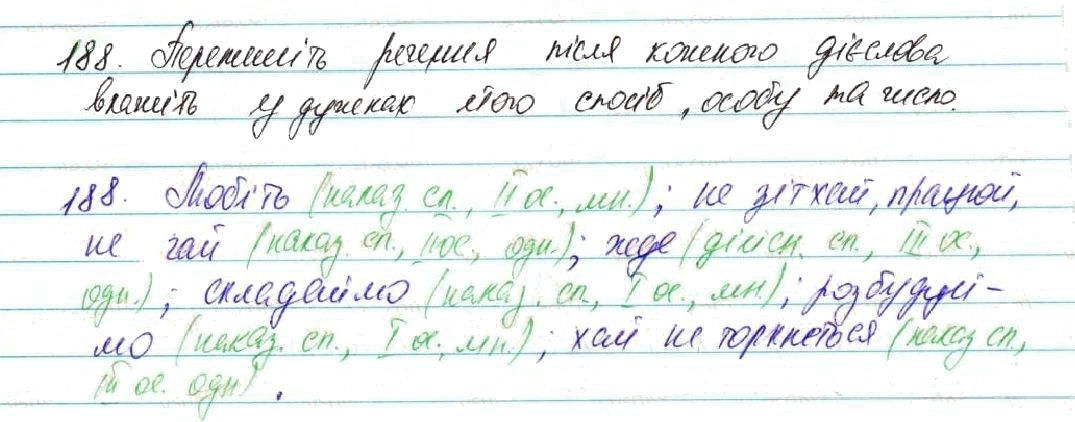 188. Перепишіть речення після кожного дієслова
вкажіть у дужках його спосіб, особу та число.
188. Любіть (наказ. сп., ІІ ос., мн.); не зітхай, працюй,
не гай (наказ. сп., ІІ ос., одн.); жде (дійсн. сп., ІІІ ос.,
одн.); складаймо (наказ. сп., І ос., мн.); розбудуй-
мо (наказ. сп., І ос., мн.); хай не торкнеться (наказ сп.,
ІІІ ос. одн).